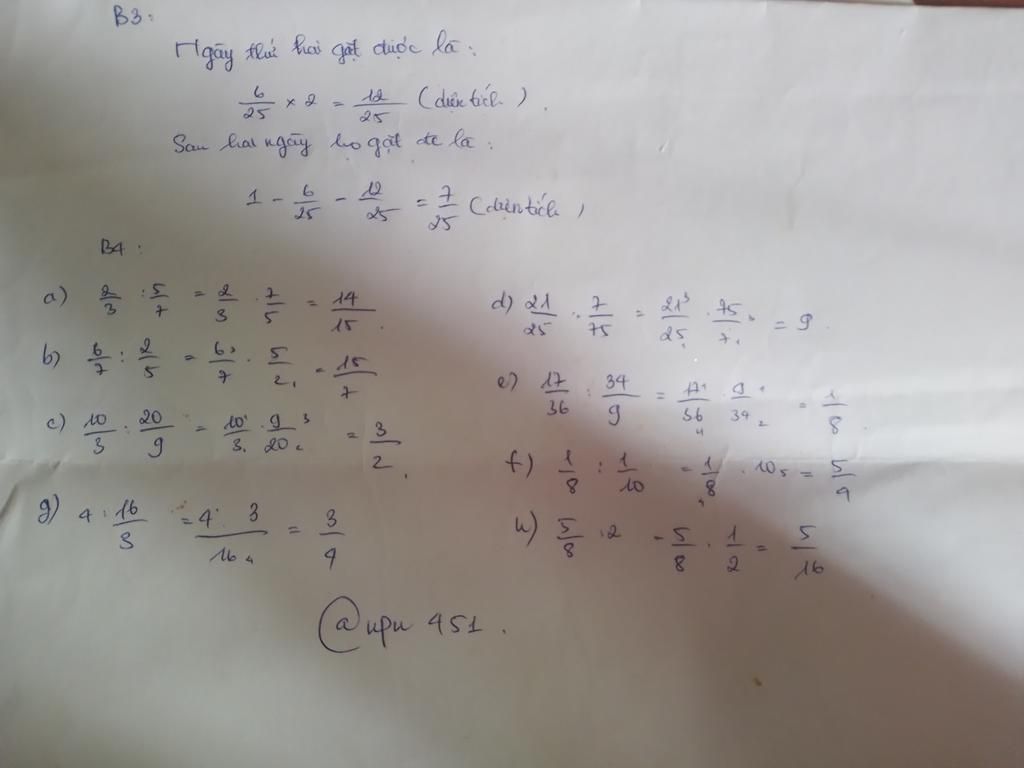 B3:
Ngày thứ hai gặt được là:
6/25 × 2 = 12/25 (diện tích).
Sau hai ngày họ gặt đc là:
1 - 6/25 - 12/25 = 7/25 (diện tích)
B4:
a) 2/3 : 5/7 = 2/3 . 7/5 = 14/15.
b) 6/7 : 2/5 = 6³/7 . 5/2₁ = 15/7
c) 10/3 : 20/9 = 10¹/3₁ . 9³/20₂ = 3/2.
g) 4 : 16/3 = 4¹ 3/16₄ = 3/4
d) 21/25 : 7/75 = 21³/25₁ . 75/7₁ = 9.
e) 17/36 : 34/9 = 17¹/36₄ . 9¹/34₂ = 1/8.
f) 1/8 : 1/10 = 1/8₄ . 10₅ = 5/4
h) 5/8 : 2 = 5/8 . 1/2 = 5/16
@upu 451.